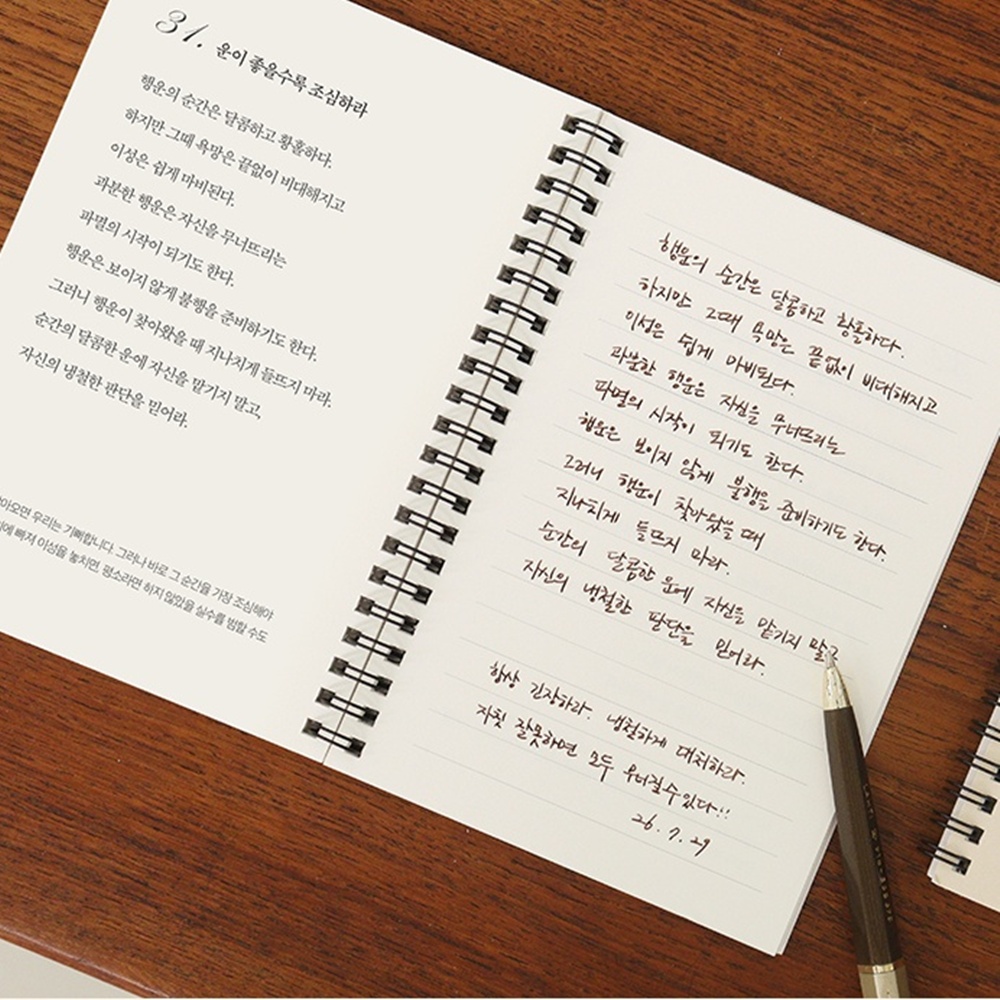 31. 운이 좋을수록 조심하라
행운의 순간은 달콤하고 황홀하다.
하지만 그때 욕망은 끝없이 비대해지고
이성은 쉽게 마비된다.
과분한 행운은 자신을 무너뜨리는
파멸의 시작이 되기도 한다.
행운은 보이지 않게 불행을 준비하기도 한다.
그러니 행운이 찾아왔을 때 지나치게 들뜨지 마라.
순간의 달콤한 운에 자신을 맡기지 말고,
자신의 냉철한 판단을 믿어라.
찾아오면 우리는 기뻐합니다. 그러나 바로 그 순간을 가장 조심해야
에 빠져 이성을 놓치면, 평소라면 하지 않았을 실수를 범할 수도
행운의 순간은 달콤하고 황홀하다.
하지만 그때 욕망은 끝없이 비대해지고
이성은 쉽게 마비된다.
과분한 행운은 자신을 무너뜨리는
파멸의 시작이 되기도 한다.
행운은 보이지 않게 불행을 준비하기도 한다.
그러니 행운이 찾아왔을 때
지나치게 들뜨지 마라.
순간의 달콤한 운에 자신을 맡기지 말고
자신의 냉철한 판단을 믿어라.
항상 긴장하라. 냉철하게 대처하라.
자칫 잘못하면 모두 무너질수있다!!
26. 7. 29